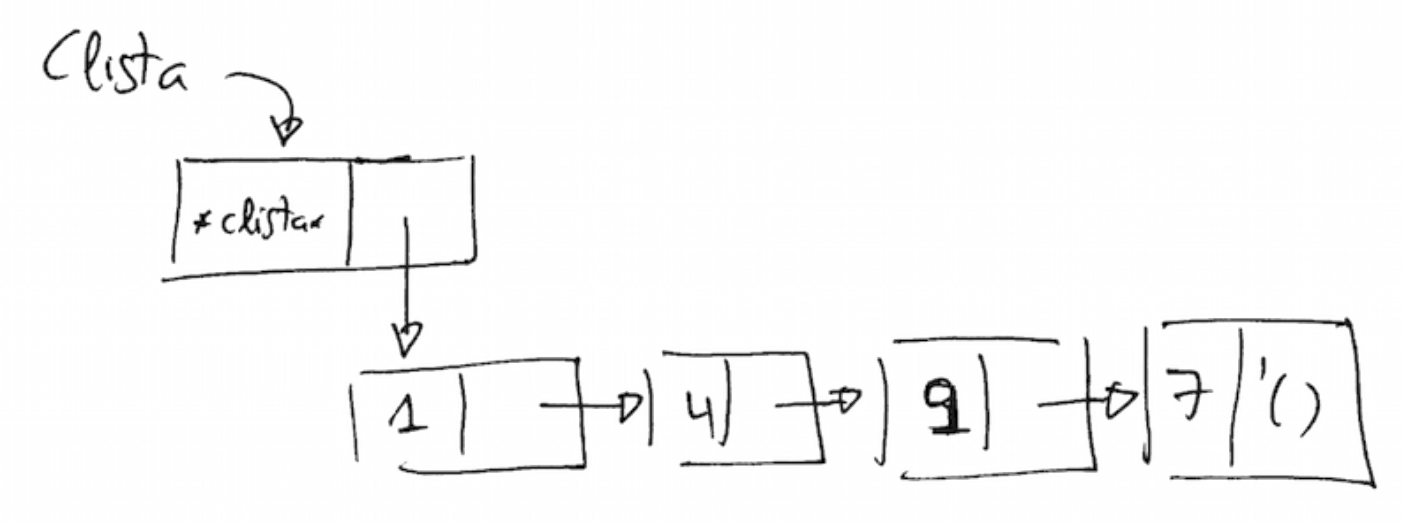 Clista
*clista*
1 4 9 7 '()